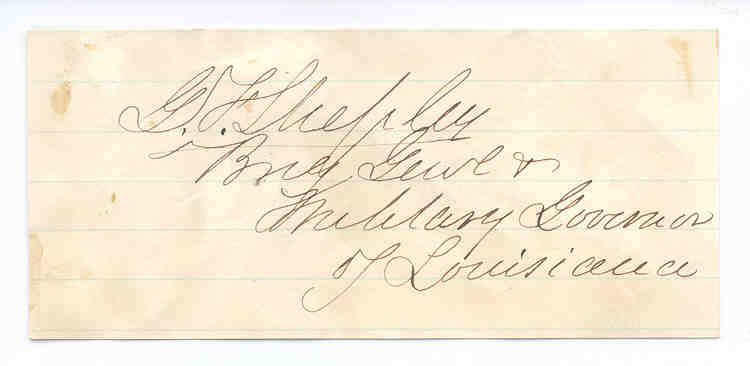 G. F. Shepley
Brig Genl &
Military Governor
of Louisiana